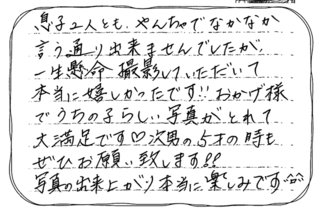 息子2人とも、やんちゃでなかなか
言う通り出来ませんでしたが、
一生懸命撮影していただいて
本当に嬉しかったです!!おかげ様
でうちの子らしい写真がとれて
大満足です♡次男の5才の時も
ぜひお願い致します!!
写真の出来上がり本当に楽しみです